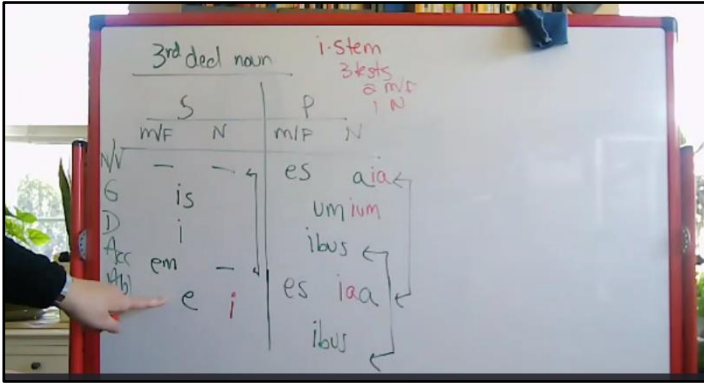 3rd decl noun
i-stem
3 tests
2 m/F
1 N
S P
m/F N m/F N
N/V — — es a ia
G is um ium
D i ibus
Acc em — es ia a
Abl e i ibus